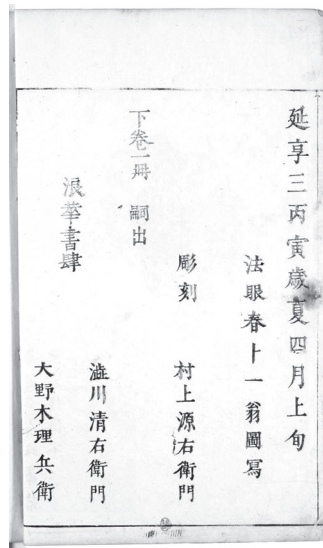 延享三丙寅歳夏四月上旬
法眼春卜一翁圖寫
彫刻 村上源右衛門
下巻一冊 嗣出
浪華書肆
澁川清右衛門
大野木理兵衛